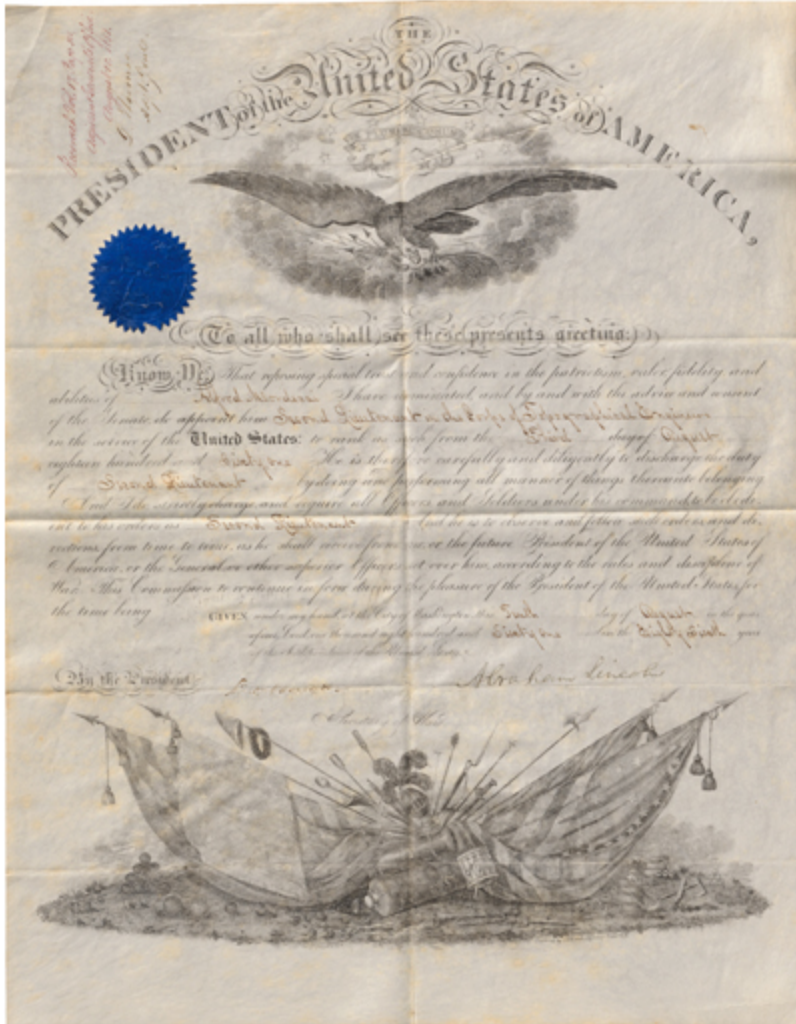 THE
United States
PRESIDENT of the of AMERICA,
To all who shall see these presents greeting:
Know Ye, That reposing special trust and confidence in the patriotism, valor, fidelity and
abilities of Alfred I have nominated, and by and with the advice and consent
of the Senate, do appoint him Second Lieutenant in the Corps of Topographical Engineers
in the service of the United States: to rank as such from the Third day of August
eighteen hundred and Sixty one He is therefore carefully and diligently to discharge the duty
of Second Lieutenant by doing and performing all manner of things thereunto belonging.
And I do strictly charge and require all Officers and Soldiers under his command to be obedi-
ent to his orders as Second Lieutenant And he is to observe and follow such orders, and di-
rections, from time to time, as he shall receive from me, or the future President of the United States of
America, or the General or other superior Officers set over him, according to the rules and discipline of
War. This Commission to continue in force during the pleasure of the President of the United States, for
the time being
GIVEN under my hand, at the City of Washington, this day of August in the year
of our Lord, one thousand eight hundred and Sixty one and in the Eighty Sixth year
of the Independence of the United States.
By the President
Abraham Lincoln
Secretary of War